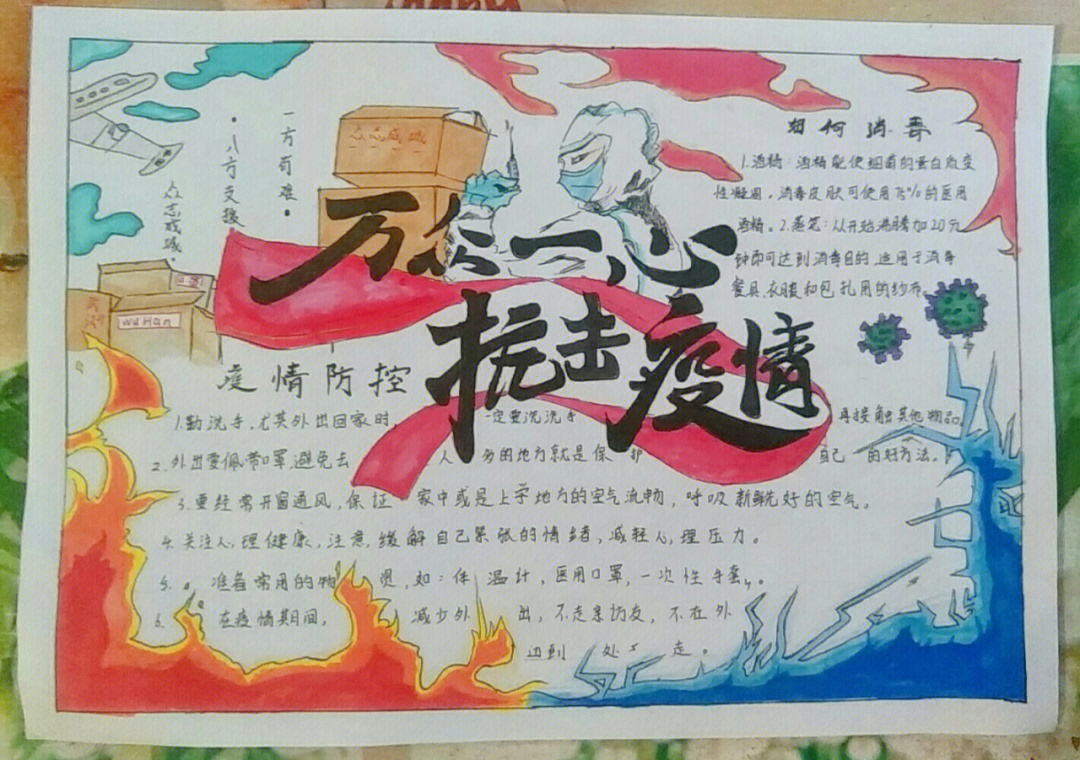 一方有难
八方支援
众志成城
众志成城
wuHan
万众一心
抗击疫情
如何消毒
1.酒精：酒精能使细菌的蛋白质变
性凝固。消毒皮肤可使用75%的医用
酒精。2.蒸笼：从开始沸腾加20分
钟即可达到消毒目的 适用于消毒
餐具、衣服和包扎用的纱布。
疫情防控
1.勤洗手，尤其外出回家时， 一定要洗洗手 再接触其他物品。
2.外出要佩带口罩，避免去 人 多的地方就是保护 自己 的好方法。
3.要经常开窗通风，保证 家中或是上学地方的空气流畅，呼吸新鲜好的空气。
4.关注心理健康，注意，缓解自己紧张的情绪，减轻心理压力。
5. 准备常用的物 资，如：体 温计，医用口罩，一次性手套。
6. 在疫情期间， 减少外 出，不走亲访友，不在外
边到 处 走。